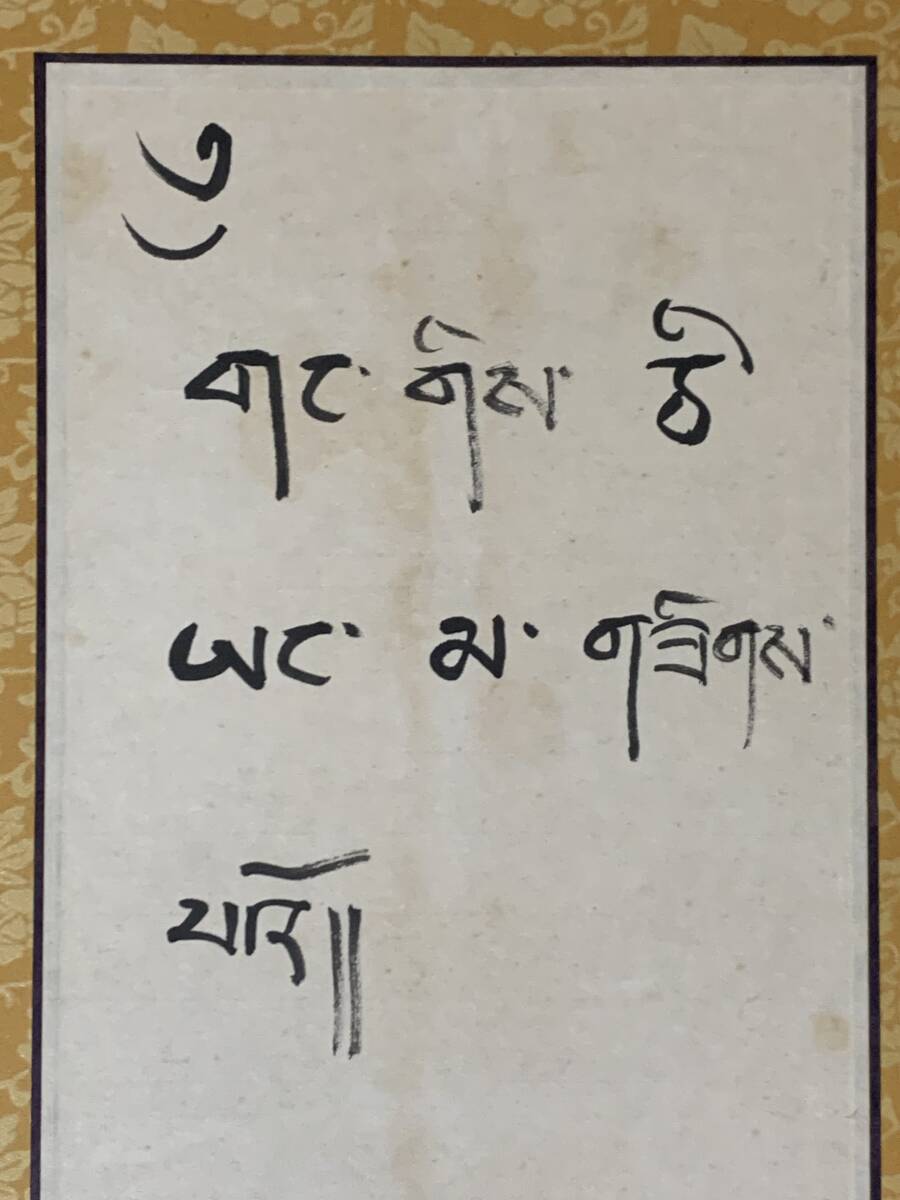 ༄
གང་གིས་ ཅི
ཡང་ མ་ གཟིགས་
པའོ།།